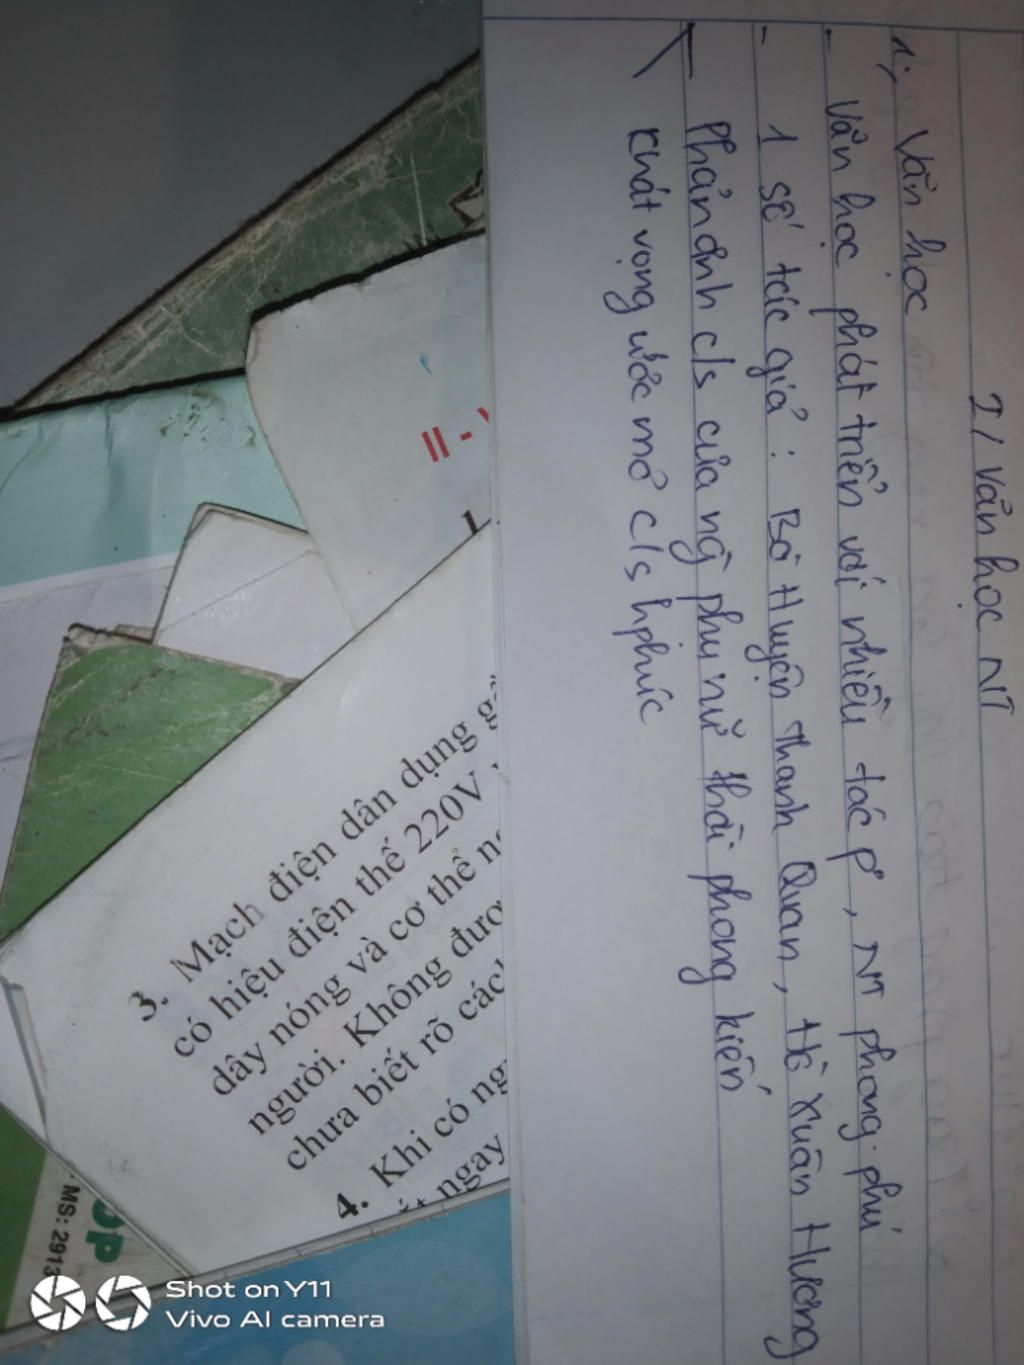 I/ Văn học NT
1; Văn học
- Văn học phát triển với nhiều tác p², NT phong phú
- 1 số tác giả : Bà Huyện Thanh Quan, Hồ Xuân Hương
Phản ánh c/s của ng phụ nữ thời phong kiến
Khát vọng ước mơ c/s hphúc
1
3. Mạch điện dân dụng
có hiệu điện thế 220V
dây nóng và cơ thể
người. Không
chưa biết rõ
4. Khi có
ngay
MS: 2913
Shot on Y11
Vivo AI camera